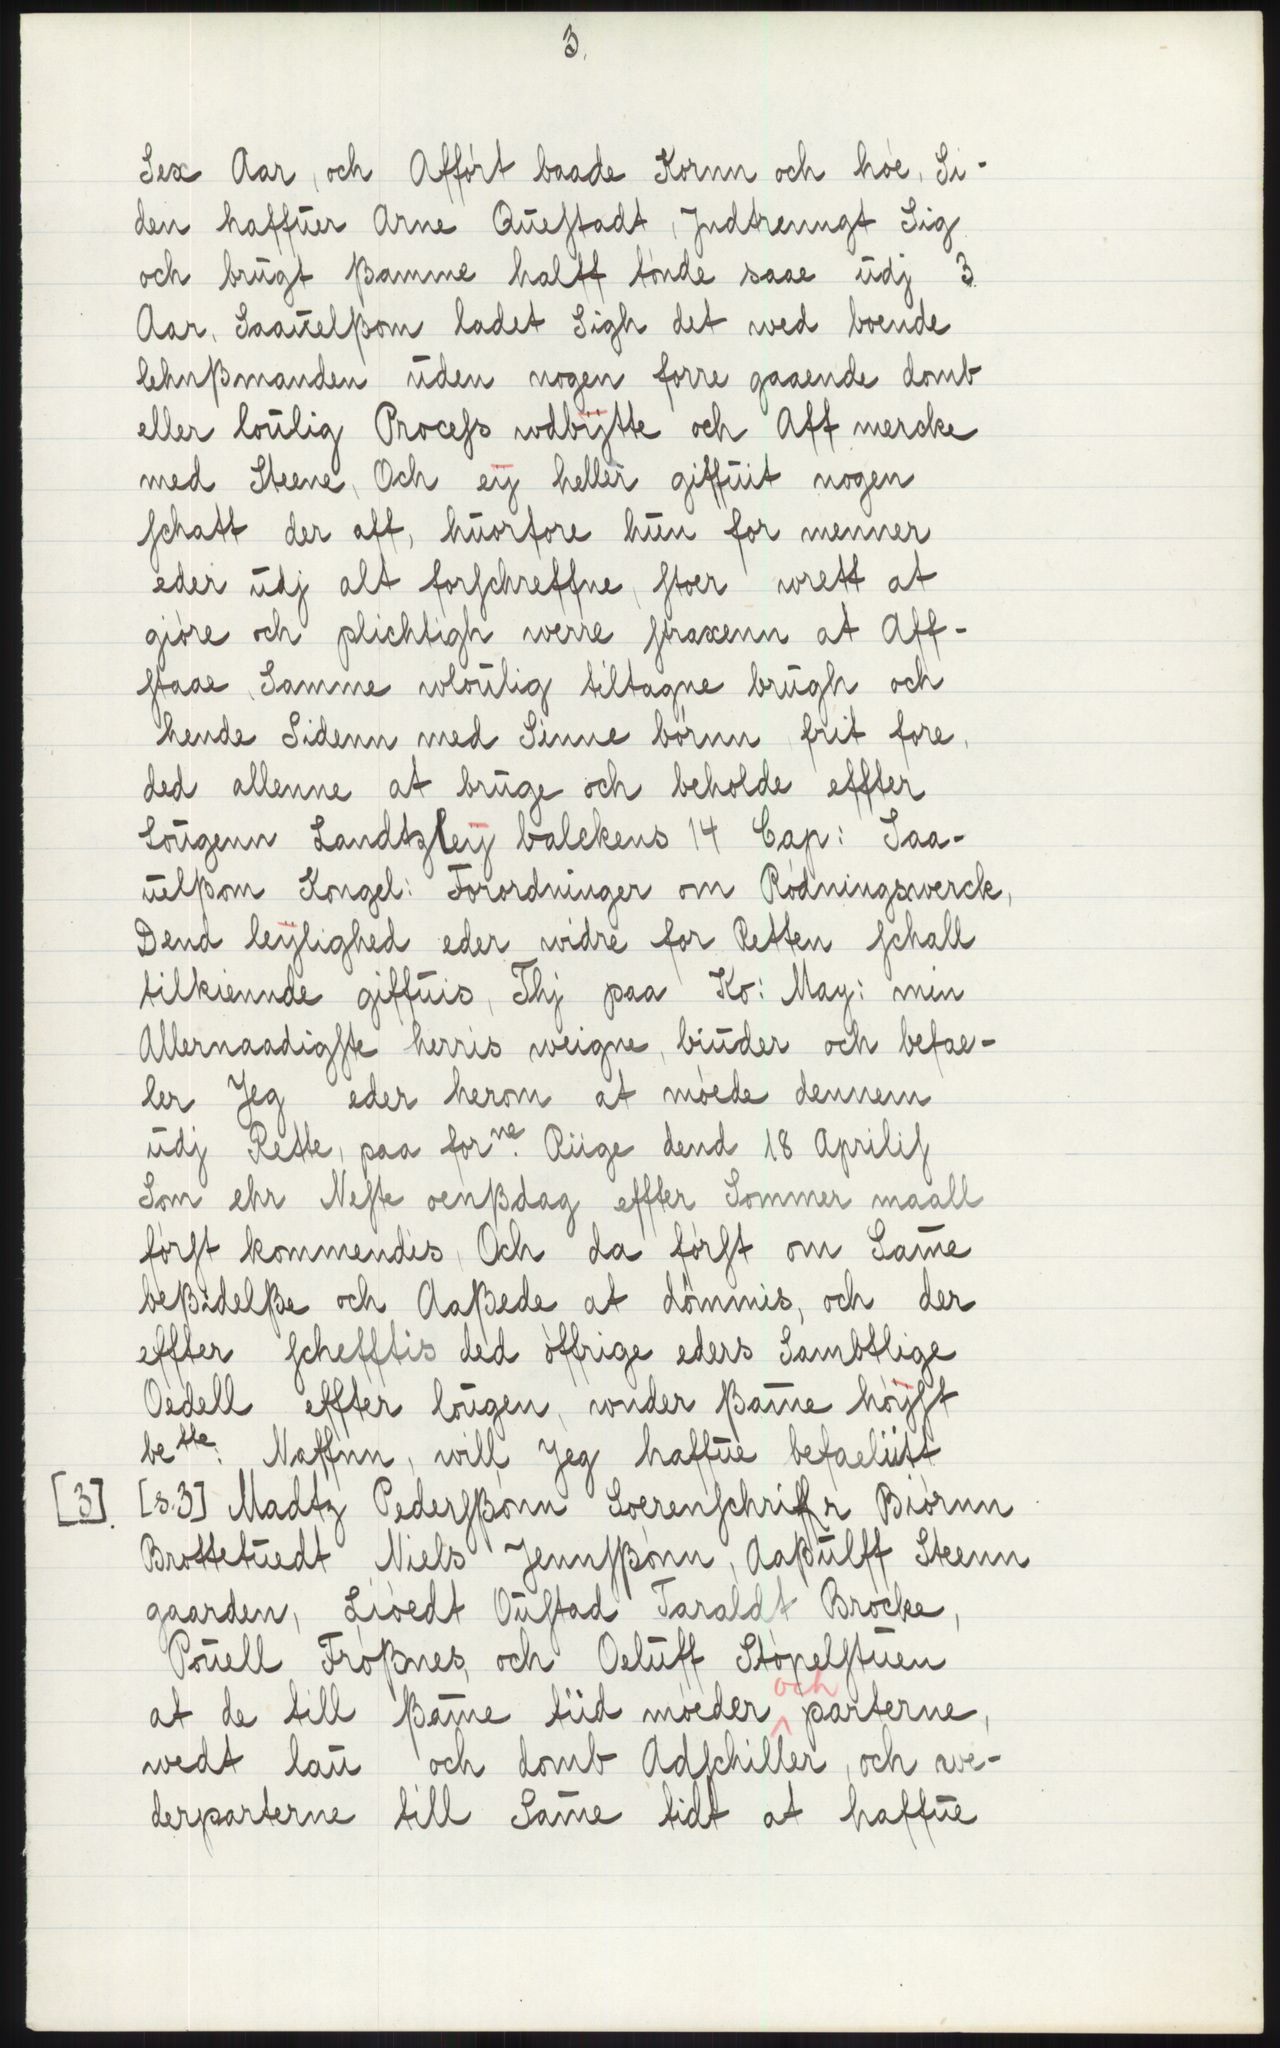 3.
Sex Aar, och Afført baade Kornn och høe, Si-
den haffuer Arne Queſtadt, Jndtrenngt Sig
och brugt ßamme halff tønde saae udj 3
Aar, Saauelßom ladet Sigh det wed boende
lehnßmanden uden nogen forre gaaende domb
eller loulig Proceſs wdbÿtte och Aff mercke
med Steene, Och eÿ heller giffuit nogen
ſchatt der aff, huorfore hun for menner
eder udj alt forſchreffne, ſtoer wrett at
giøre och plichtigh werre ſtraxenn at Aff-
ſtaae, Samme wloulig tiltagne brugh och
hende Sidenn med Sinne børnn frit fore,
ded allenne at bruge och beholde effter
Lougenn Landtzleÿ balckens 14 Cap: Saa-
uelßom Kongel: Forordninger om Rødningswerck,
Dend leÿlighed eder widre for Retten ſchall
tilkiennde giffuis, Thj paa Ko: May: min
Allernaadigſte herris weigne, biuder och befae-
ler Jeg eder herom at møede dennem
udj Rette, paa forne. Riige dend 18 Apriliſ
Som ehr Neſte oenßdag effter Sommer maall
førſt kommendis, Och da førſt om Sam̅e
beßidelße och Aaßede at dømmis, och der
effter ſchefftis ded øffrige eders Sambtlige
Oedell effter lougen, wnder ßam̅e høÿſt
bette: Naffnn, will Jeg haffue befaeliitt
[3]. [s.3] Madtz Pederſßønn Soerenſchriffr Biørnn
Brottetuedt Niels Jennſßønn, Aaßulff Steenn
gaarden, Siøedt Ouſtad Taraldt Brocke,
Pouell Froßnes, och Oeluff Støpelſtuen
at de till ßam̅e tiid møeder och parterne,
wedt lau och domb Adſchiller, och we-
derparterne till Sam̅e tidt at haffue